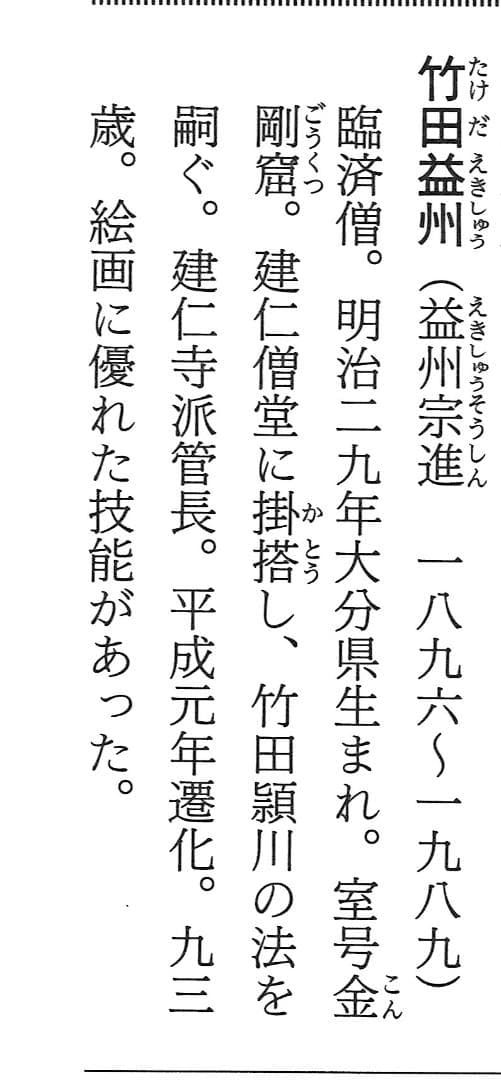 竹田益州（益州宗進　一八九六～一九八九）
臨済僧。明治二九年大分県生まれ。室号金
剛窟。建仁僧堂に掛搭し、竹田頴川の法を
嗣ぐ。建仁寺派管長。平成元年遷化。九三
歳。絵画に優れた技能があった。